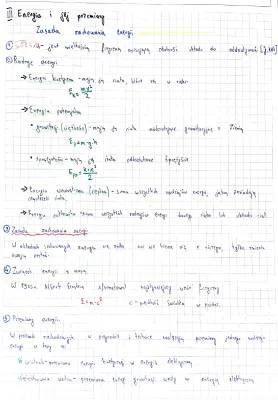 III Energia i jej przemiany
Zasada zachowania energii
① - jest wielkością fizyczną opisującą zdolność układu do oddziaływań [J, kWh]
② Rodzaje energii
→ Energia kinetyczna - mają ją ciała, które są w ruchu
Ek = mv²/2
→ Energia potencjalna
• grawitacji (ciężkości) - mają ją ciała oddziałujące grawitacyjnie z Ziemią
E = m·g·h
• sprężystości - mają ją ciała odkształcone sprężyście
Ep = k·x²/2
→ Energia wewnętrzna (cieplna) - suma wszystkich rodzajów energii, jaką posiadają
cząsteczki ciała
→ Energia całkowita - suma wszystkich rodzajów energii danego ciała lub układu ciał
③ Zasada zachowania energii
W układach izolowanych energia nie znika ani nie bierze się z niczego, tylko zmienia
swoją postać
④ Związek energii z masą
W 1905r. Albert Einstein sformułował następujący wzór fizyczny
E = m·c² c - prędkość światła w próżni
⑤ Przemiany energii
W procesach zachodzących w przyrodzie i technice następują przemiany jednego rodzaju
energii w inny np.
- przemiana energii kinetycznej w energię elektryczną
- przemiana energii grawitacji wody w energię elektryczną